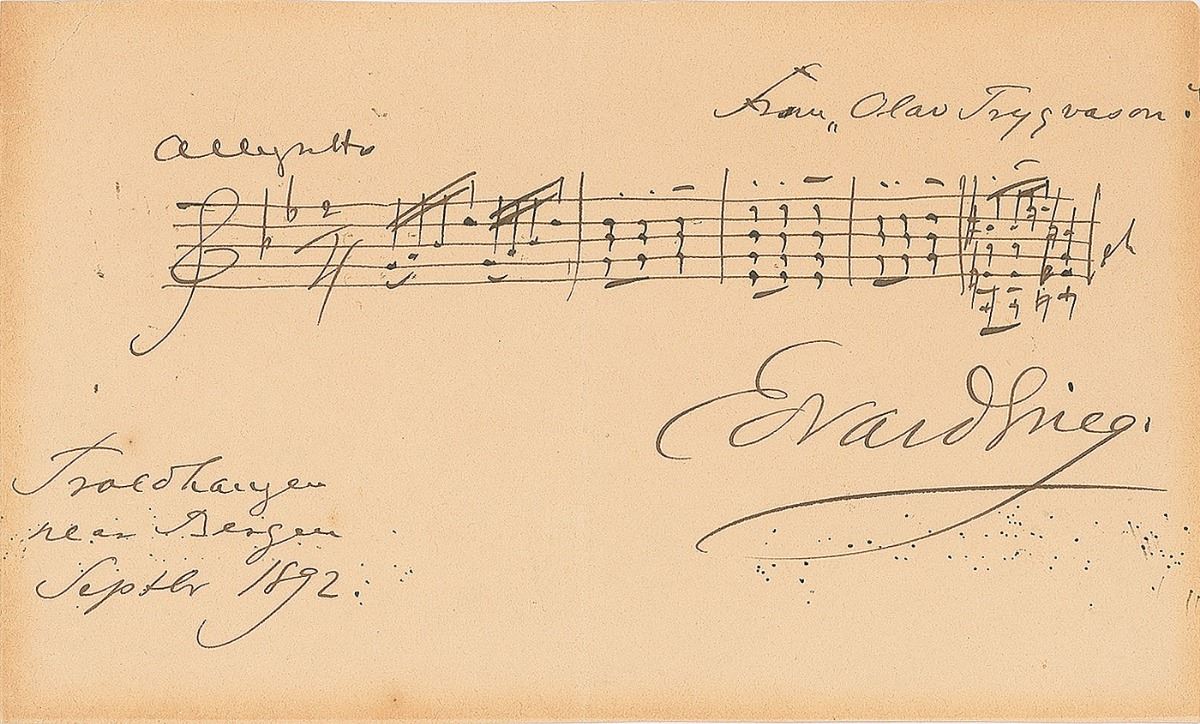 From „Olav Trygvason".
Allegretto
2/4
Edvard Grieg.
Troldhaugen
near Bergen
Septbr 1892.